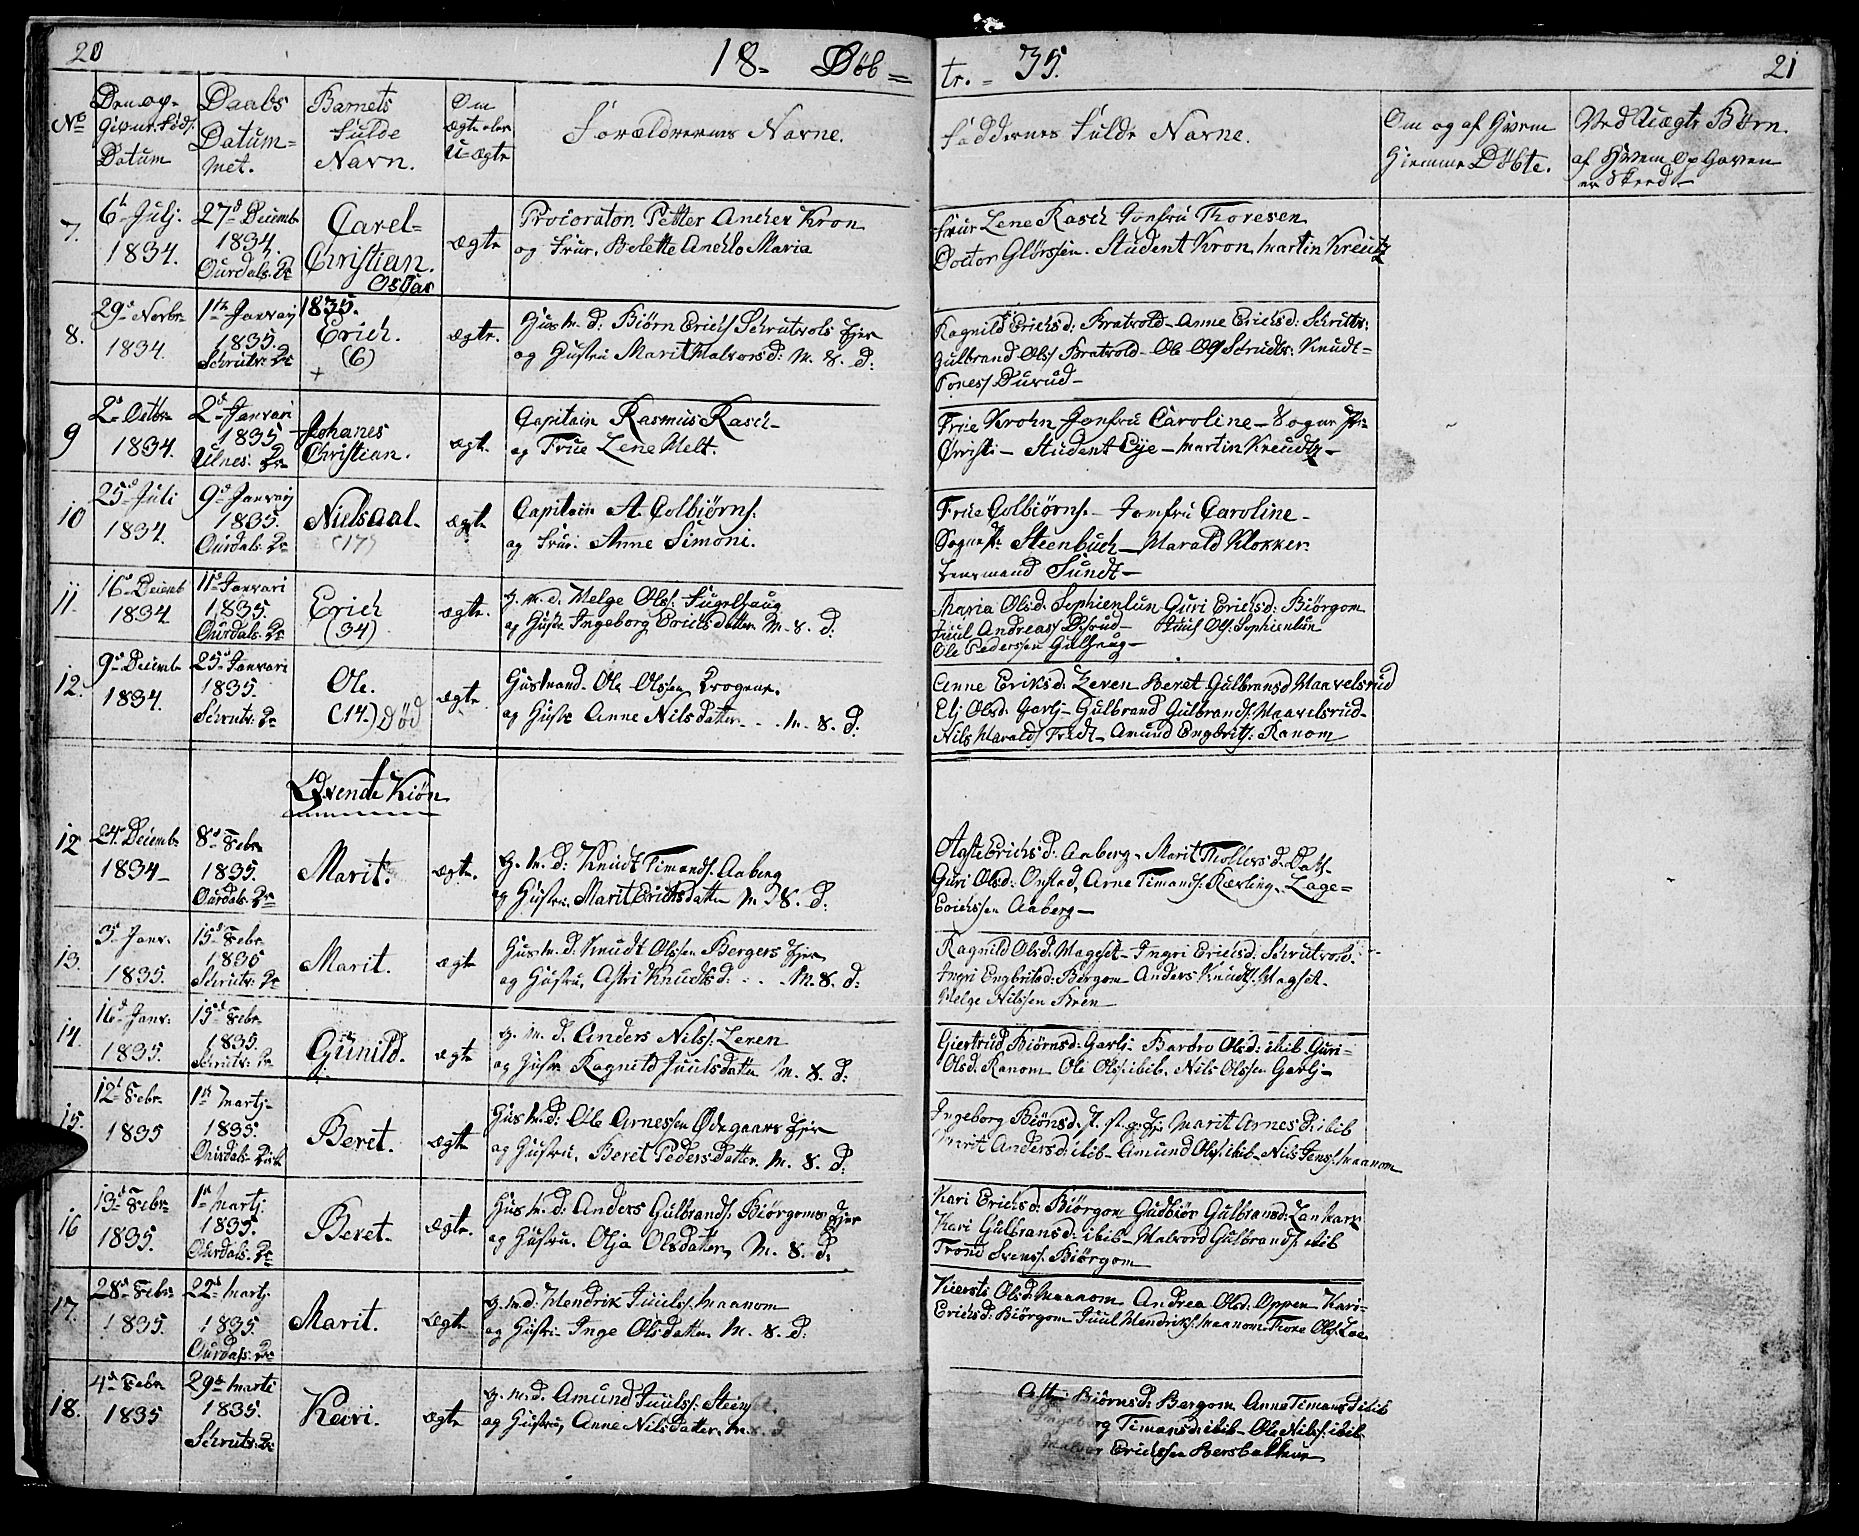 20
18- Døb=
tr.- 35.
21
No
Den op-
givne Føds.
Datum
Daabs
Datum=
met.
Barnets
fulde
Navn.
Om
ægte eler
U-ægte
Forældrernes Navne.
Faddernes Fulde Navne.
Om og af Hvem
Hiemme Døbte.
Ved Uægte Børn
af Hvem Opgaven
er Skeed-
7. 6t Julj. 1834. 27d Decemb 1834. Ourdals. K Carel= Christian. Oscar ægte
Procorator. Petter Ancher Kron
og Frue. Belette Ancklo Maria
Frue Lene Rasch Jomfru Thoresen
Doctor Glørssen. Student Kron Martin Kreutz
1835.
8. 29d Novbr 1834. 1te Janvarj 1835. Schrutv: K Erich. (6) + ægte.
Husm. d: Biørn Erichs Schrutvols Ejer
og Hustru Marit Halvorsd: M. 8. d:
Ragnild Erichsd: Bratvold- Anne Erichsd: Schrutv:
Gulbrand Ols Bratvold- Ole Ols Schrutv: Knudt=
Tones Duvud-
9 2d Octbr 1834. 2d Janvari 1835 Ulnes. K Johanes Christian. ægt.
Capitain Rasmus Rasch-
og Frue Lene Melt.
Frue Krohn Jomfru Caroline- Sogne Pr
Christi- Student Eye- Martin Kreudtz-
10 25d Juli 1834. 9d Janvarj 1835. Ourdals K Niels Aal. (17) ægte
Capitain A. Colbiørns.
og Frue. Anne Simoni.
Frue Colbiørns.- Jomfru Caroline-
Sogne Pr Steenbuch- Harald Klokker.
Lensmand Sundt-
11. 16d Decemb 1834 11d Janvari 1835. Ourdals K Erich (34) ægte.
g. m. d. Helge Ols: Fugelhaug
og Hustr. Ingeborg Erichsdatter M. 8. d:
Maria Olsd. Sophienlun Guri Erichsd: Biørgom
Juul Andreas Juul Ols. Sophienlun
Ole Pederssen Gulhaug-
12. 9d Decemb 1834. 25d Janvari 1835. Schrutv: K Ole. (14.) Død ægte.
Husmand- Ole Olssen
og Hustr Anne Nilsdatter. - . M. 8. d:
Anne Eriksd. Leren Beret Gulbransd Maavelsrud
Elj Olsd. Garlj- Gulbrand Gulbrands. Maavelsrud-
Nils Haralds Amund Engbrits. Ranom
Qvende Kiøn
12 24. Decemb 1834- 8d Febr. 1835. Ourdals K Marit. ægte.
g. m. d: Knudt Timands. Aaberg
og Hustr. Marit Erichsdatter M 38. d:
Agste Erichsd. Aaberg- Marit Thollersd.
Guri Olsd: Onstad, Arne Timands: Rævling- Lage=
Erichssen Aaberg-
13. 3d Janv. 1835. 15d Febr. 1835 Schrutv: K Marit. ægte
Husm. d. Knudt Olssen Bergers Ejer
og Hustru, Astri Knudtsd: . . . M. 8. d:
Ragnild Olsd. Magset- Ingri Erichsd. Schrutvold.
Ingri Engbritsd: Bergom- Anders Knudts. Magset-
Helge Nilssen Bren-
14. 16d Janv: 1835. 15d Febr. 1835. Schrutv: K Gunild. ægte
g. m. d. Anders Nilss. Leren
og Hustr Ragnild Juulsdatter M. 8. d:
Giertrud Biørnsd: Garlj- Barbro Olsd: ibib- Guri-
Olsd. Ranom Ole Ols: ibib. Nils Olssen Garlj-
15. 12t Febr. 1835 1te Martj- 1835. Ourdals- Kirk Beret. ægte
Husm. d: Ole Arnessen Ødegaars Ejer
og Hustru, Beret Pedersdatter. M. 8. d:
Ingeborg Biønsd. Marit Arnesd: ibib
Marit Andersd: ibib- Amund Ols. ibib- Nils Jens. Maanom
16 13d Febr 1835. 1te Martj. 1835. Ourdals. K Beret. ægte.
Husm. d: Anders Gulbrands. Biørgomes Ejer
og Hustru. Olja Olsdatter, M. 8. d:
Kari Erichsd: Biørgom Gudbiør Gulbransd:
Kari Gulbransd: ibib- Halvord Gulbrands. ibib
Trond Svens. Biørgom
17. 28d Febr 1835. 22d Martj. 1835. Ourdals. K Marit. ægte
g. m. d: Hendrik Juulss. Maanom
og Hustr- Inge Olsdatter. M. 8. d:
Kiersti Olsd. Maanom Andrea Olsd. Oppen Kari-
Erichsd. Biørgom- Juul Hendriks. Maanom- Thore Ols. Loe
18. 4d Febr 1835 29d Marti 1835. Schrutv: K Kari. ægte
g. m. d. Amund Juulss.
og Hustru, Anne Nilsdatter. M. 8. d
Biørnsd: Bergom Anne Timansd ibib
Ingeborg Timansd: ibib- Ole Nilss. ibib
Halvor Erichssen